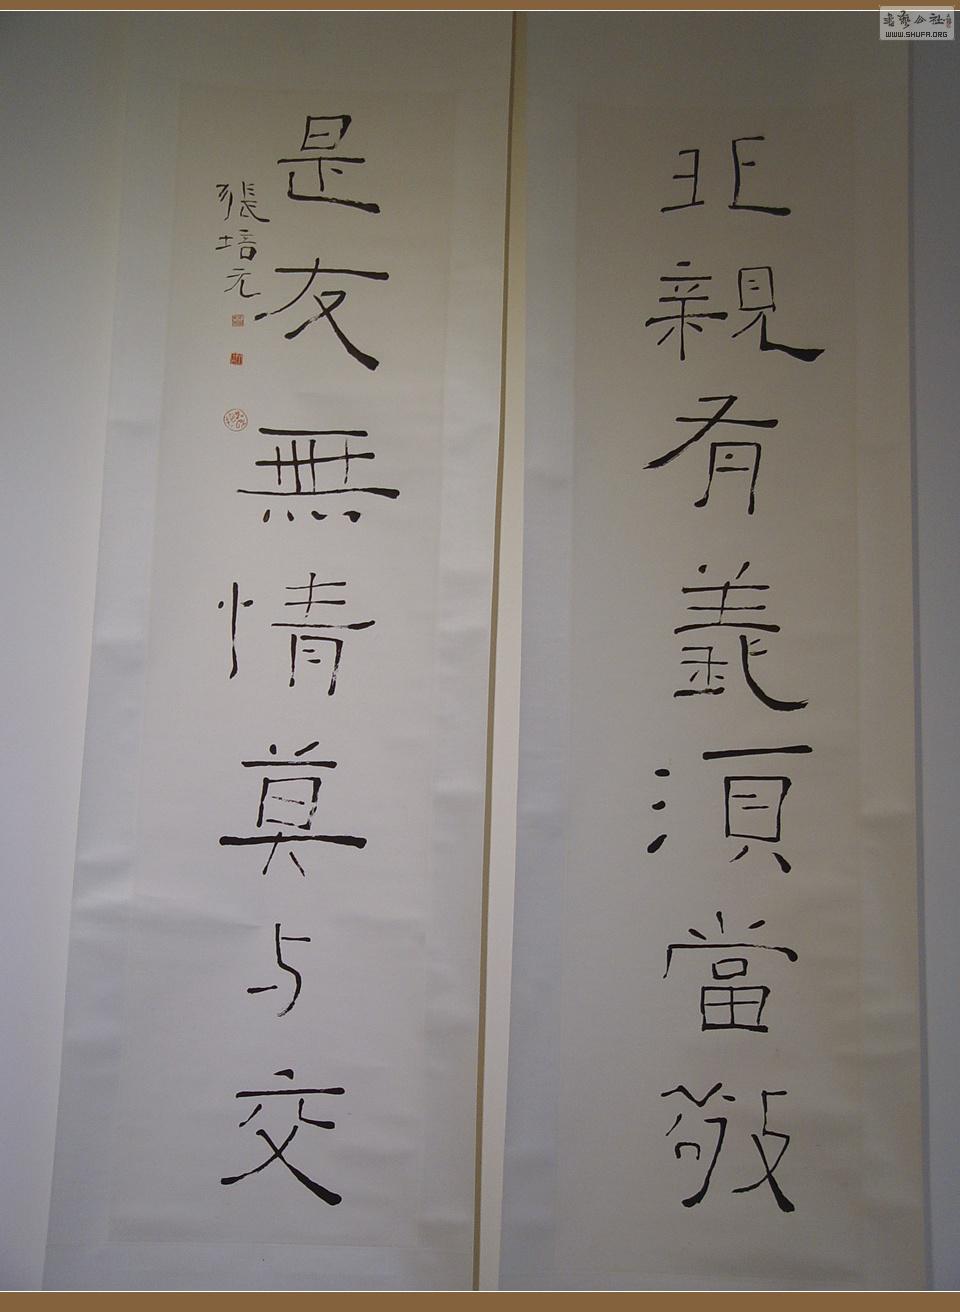 非親有義須當敬
是友無情莫与交
張培元
WWW.SHUFA.ORG